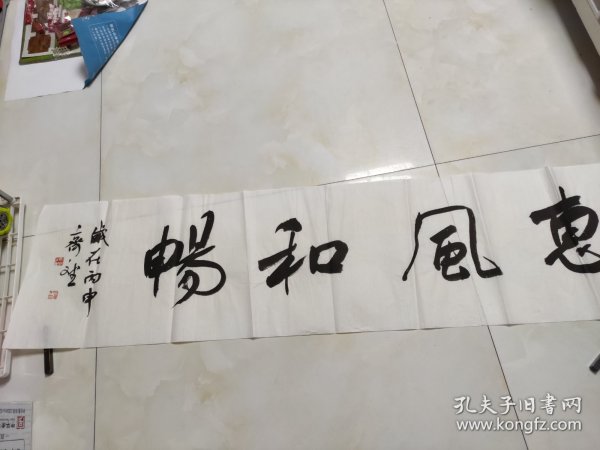 惠風和暢
歲在丙申
孔夫子旧书网
www.kongfz.com